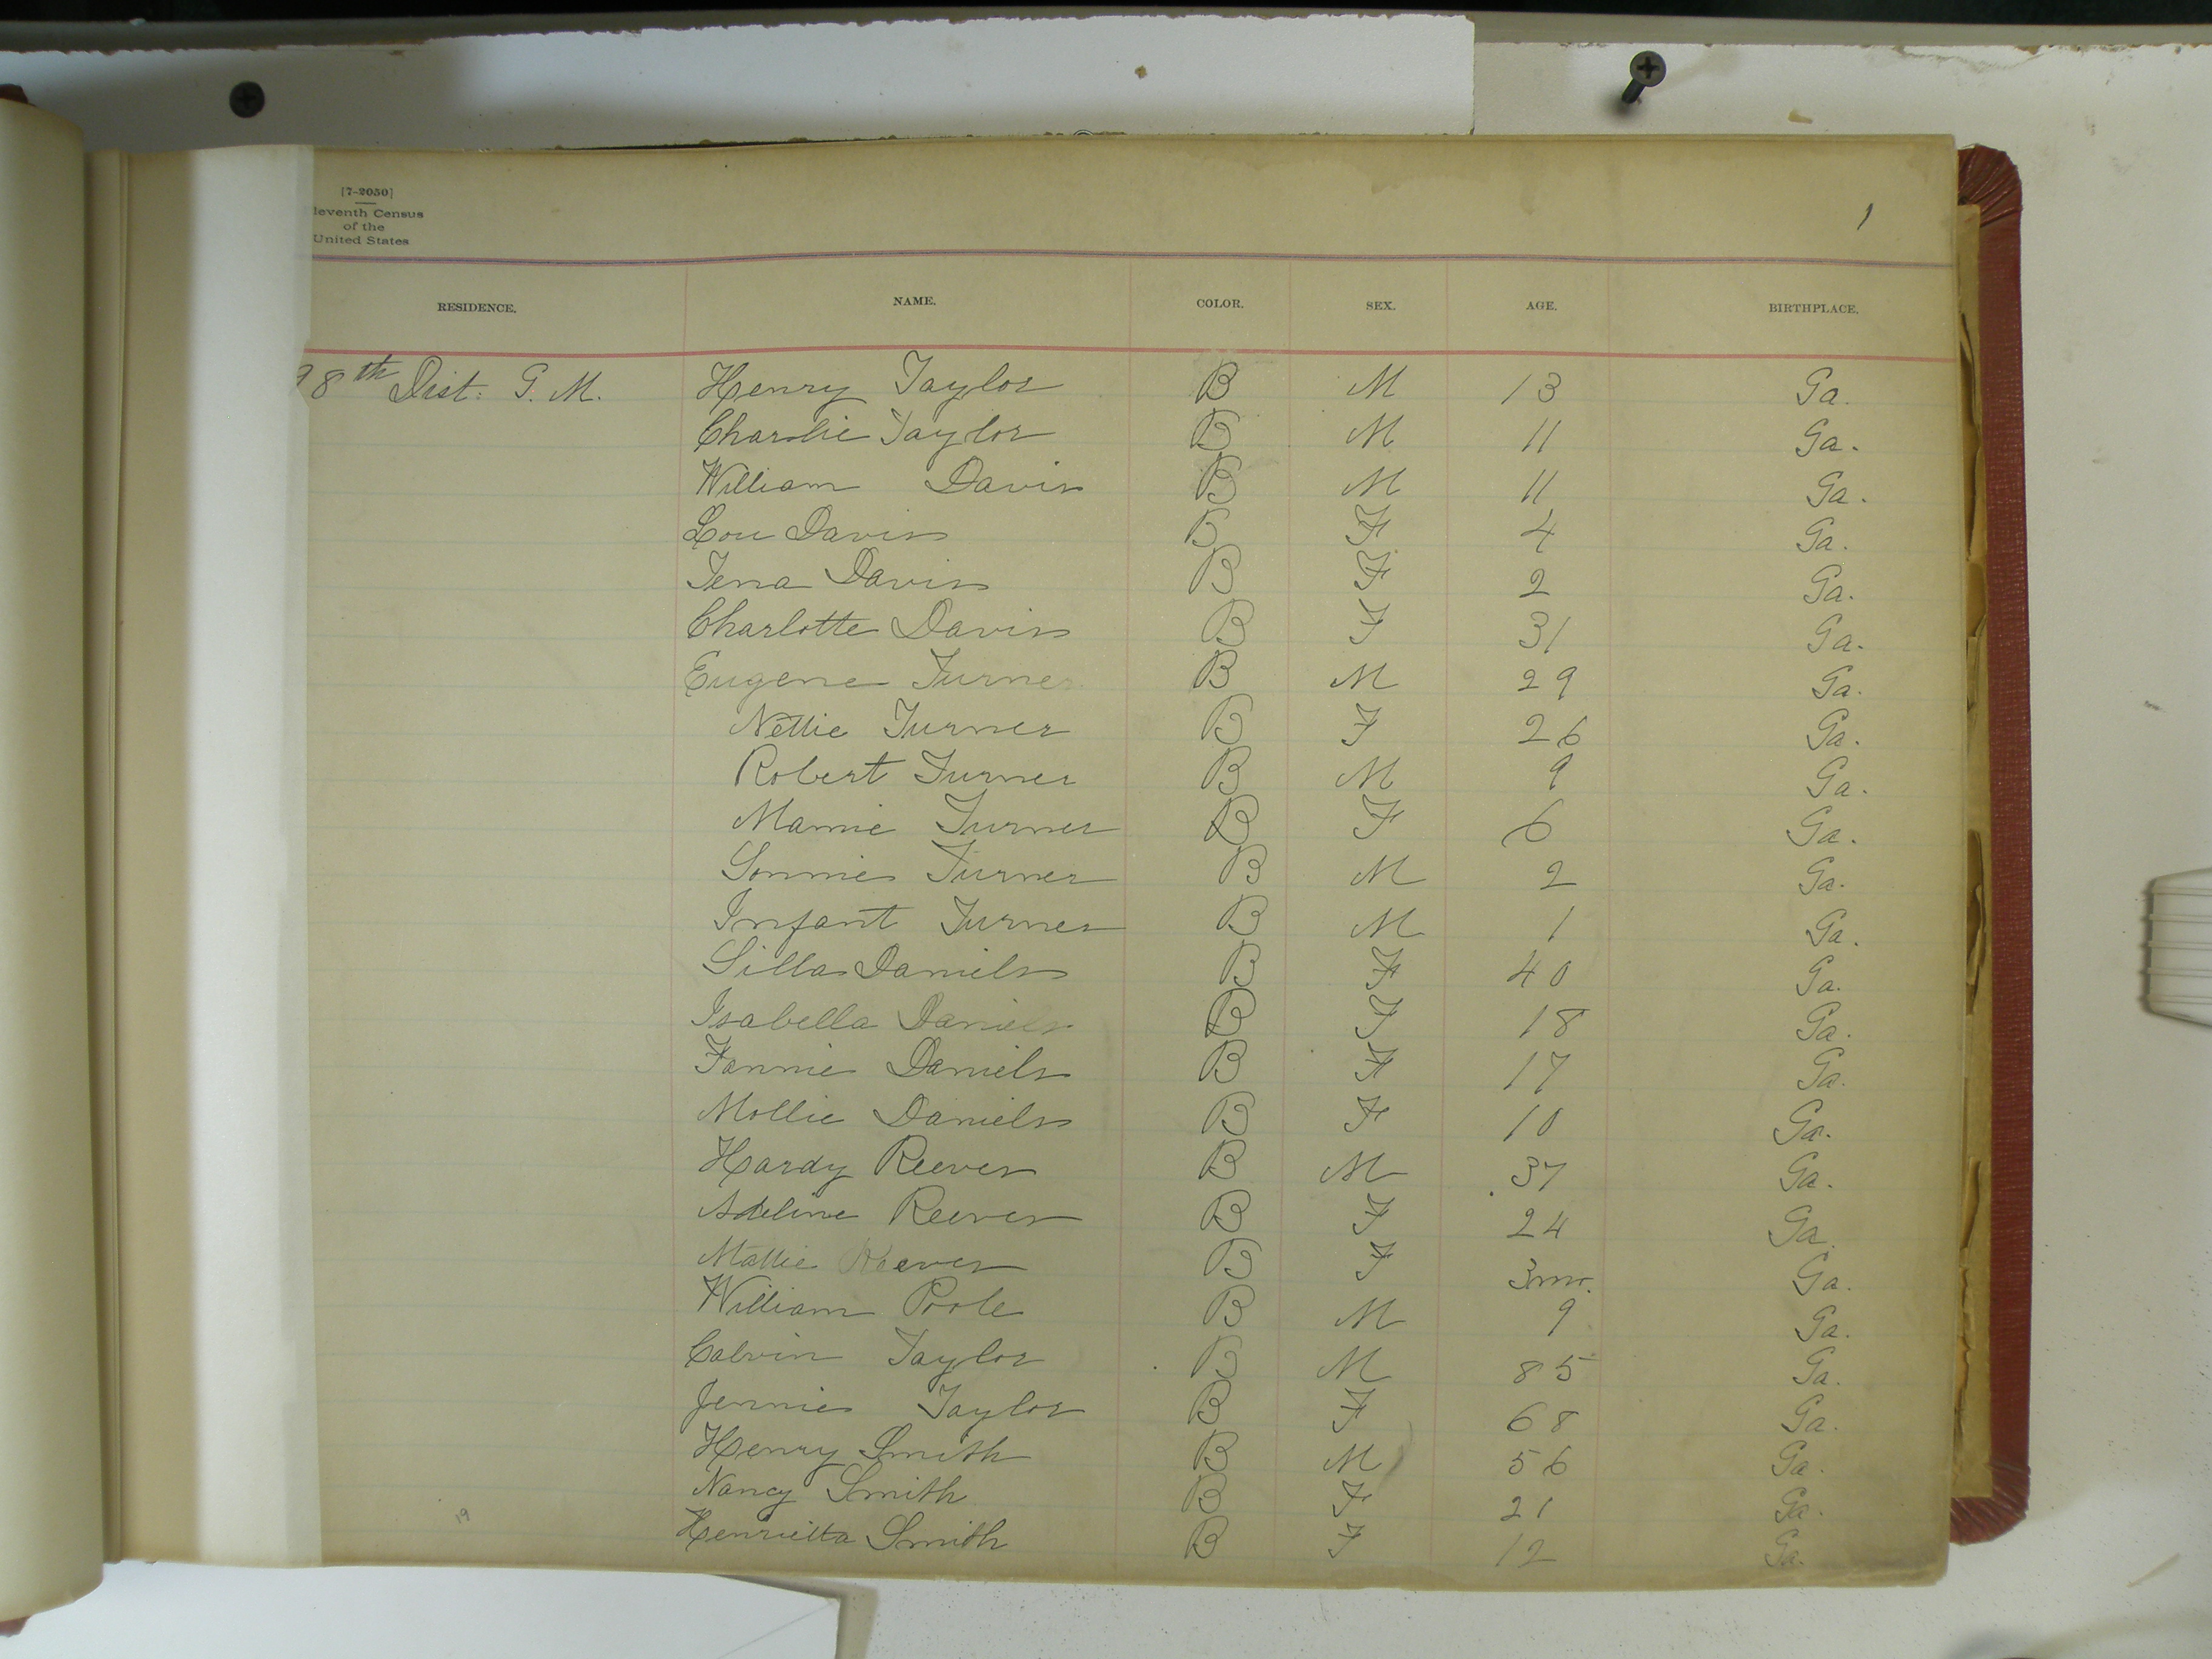 [7-2050]
leventh Census
of the
United States
1
RESIDENCE. NAME. COLOR. SEX. AGE. BIRTHPLACE.
98th Dist. G. M. Henry Taylor B M 13 Ga.
Charlie Taylor B M 11 Ga.
William Davis B M 11 Ga.
Lou Davis B F 4 Ga.
Tena Davis B F 2 Ga.
Charlotte Davis B F 31 Ga.
Eugene Turner B M 29 Ga.
Nettie Turner B F 26 Ga.
Robert Turner B M 9 Ga.
Mamie Turner B F 6 Ga.
Sonnie Turner B M 2 Ga.
Infant Turner B M 1 Ga.
Silla Daniels B F 40 Ga.
Isabella Daniels B F 18 Ga.
Fannie Daniels B F 17 Ga.
Mollie Daniels B F 10 Ga.
Hardy Reeves B M 37 Ga.
Adeline Reeves B F 24 Ga.
Mattie Reeves B F 3mo. Ga.
William Poole B M 9 Ga.
Calvin Taylor B M 85 Ga.
Jennie Taylor B F 68 Ga.
Henry Smith B M 56 Ga.
Nancy Smith B F 21 Ga.
Henrietta Smith B F 12 Ga.
19